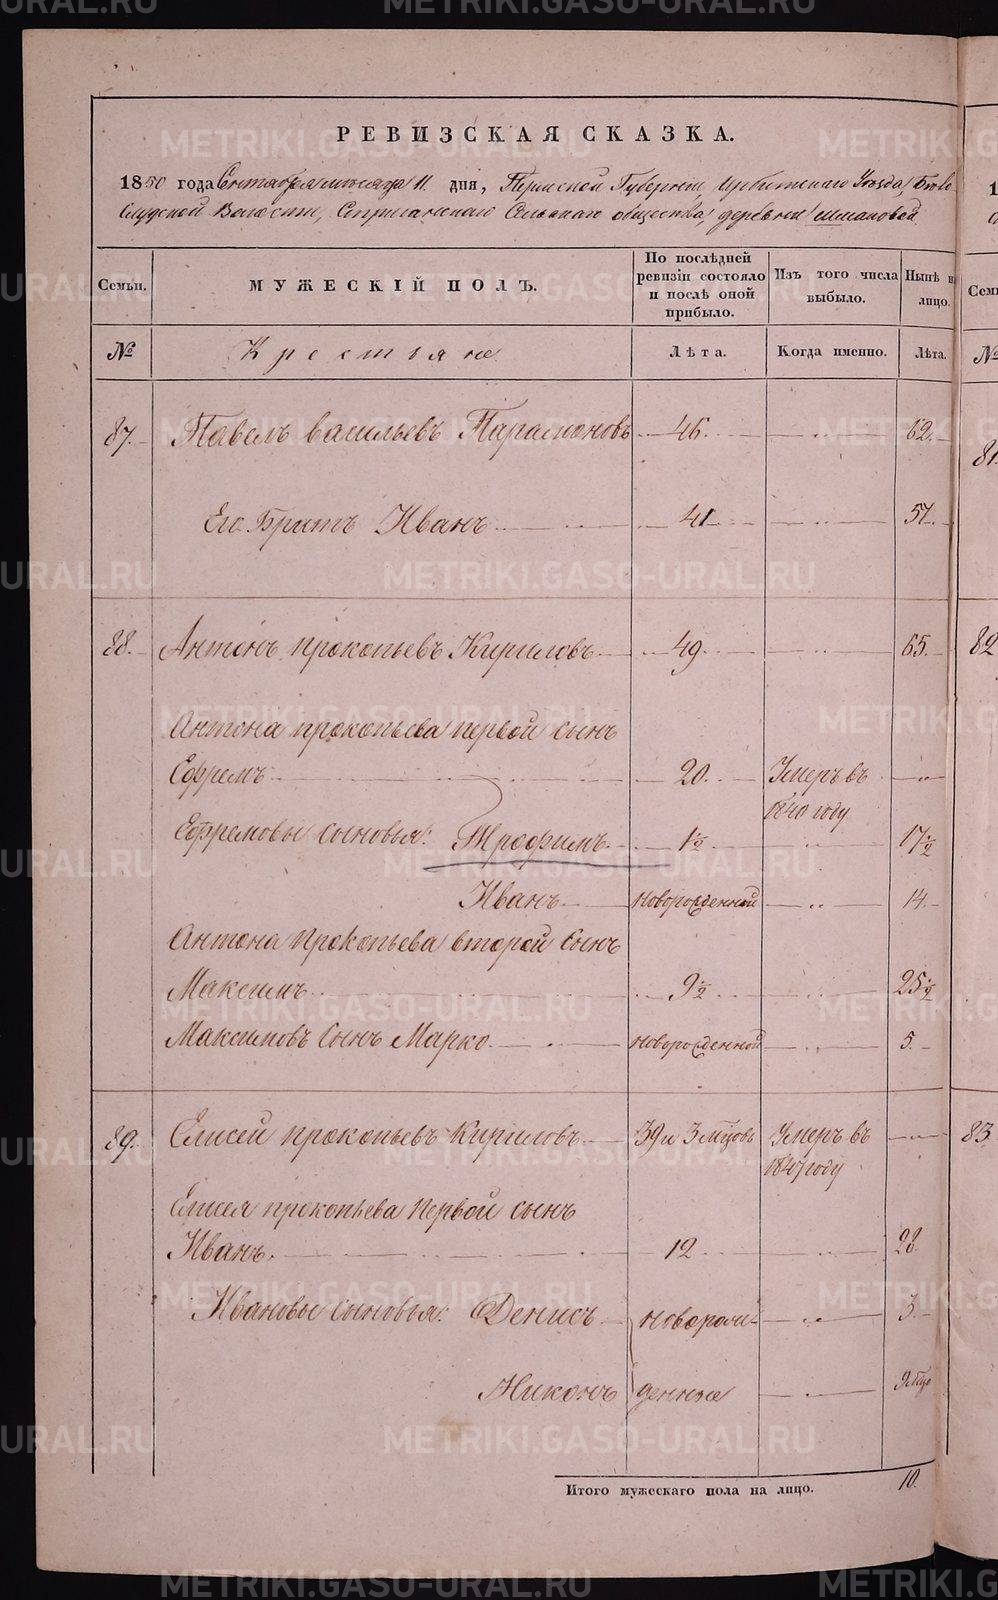 РЕВИЗСКАЯ СКАЗКА.
1850 года Сентября месяца 11 дня, Пермской Губернии Ирбитскаго Уѣзда, Бѣло
слудской Волости, Сельскаго общества, деревни Шмаковой
Семьи. МУЖЕСКІЙ ПОЛЪ. По послѣдней ревизіи состояло и послѣ оной прибыло. Изъ того числа выбыло. Нынѣ на лицо.
№ Крестьяне Лѣта. Когда именно. Лѣта.
87. Павелъ васильевъ Парамоновъ 46. 62.
Его Братъ Иванъ 41 57.
88. Антонъ прокопьевъ Кириловъ 49. 65.
Антона прокопьева первой сынъ
Ефремъ 20. Умеръ въ
1840 году
Ефремовы сыновья: Трофимъ 1½ 17½
Иванъ новорожденной 14.
Антона Прокопьева второй Сынъ
Максимъ 9½ 25½
Максимовъ Сынъ Марко новорожденной 5.
89. Елисей прокопьевъ Кириловъ 39 и 3 мцовъ Умеръ въ
1847 году
Елисея прокопьева первой сынъ
Иванъ. 12 28.
Ивановы Сыновья: Денисъ новорож- 3.
Никонъ денные 9 мцо
Итого мужескаго пола на лицо. 10.
81.
82
83
METRIKI.GASO-URAL.RU